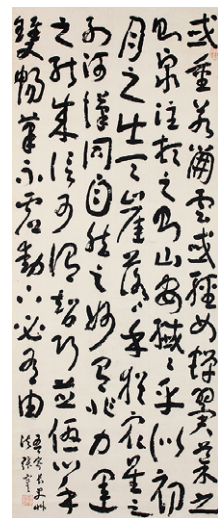 或重若崩雲或輕如蟬翼導之
則泉注頓之則山安纖纖乎似初
月之出天崖落落乎猶衆星之
列河漢同自然之妙有非力運
之能成信可謂智巧兼優心手
雙暢翰不虛動下必有由